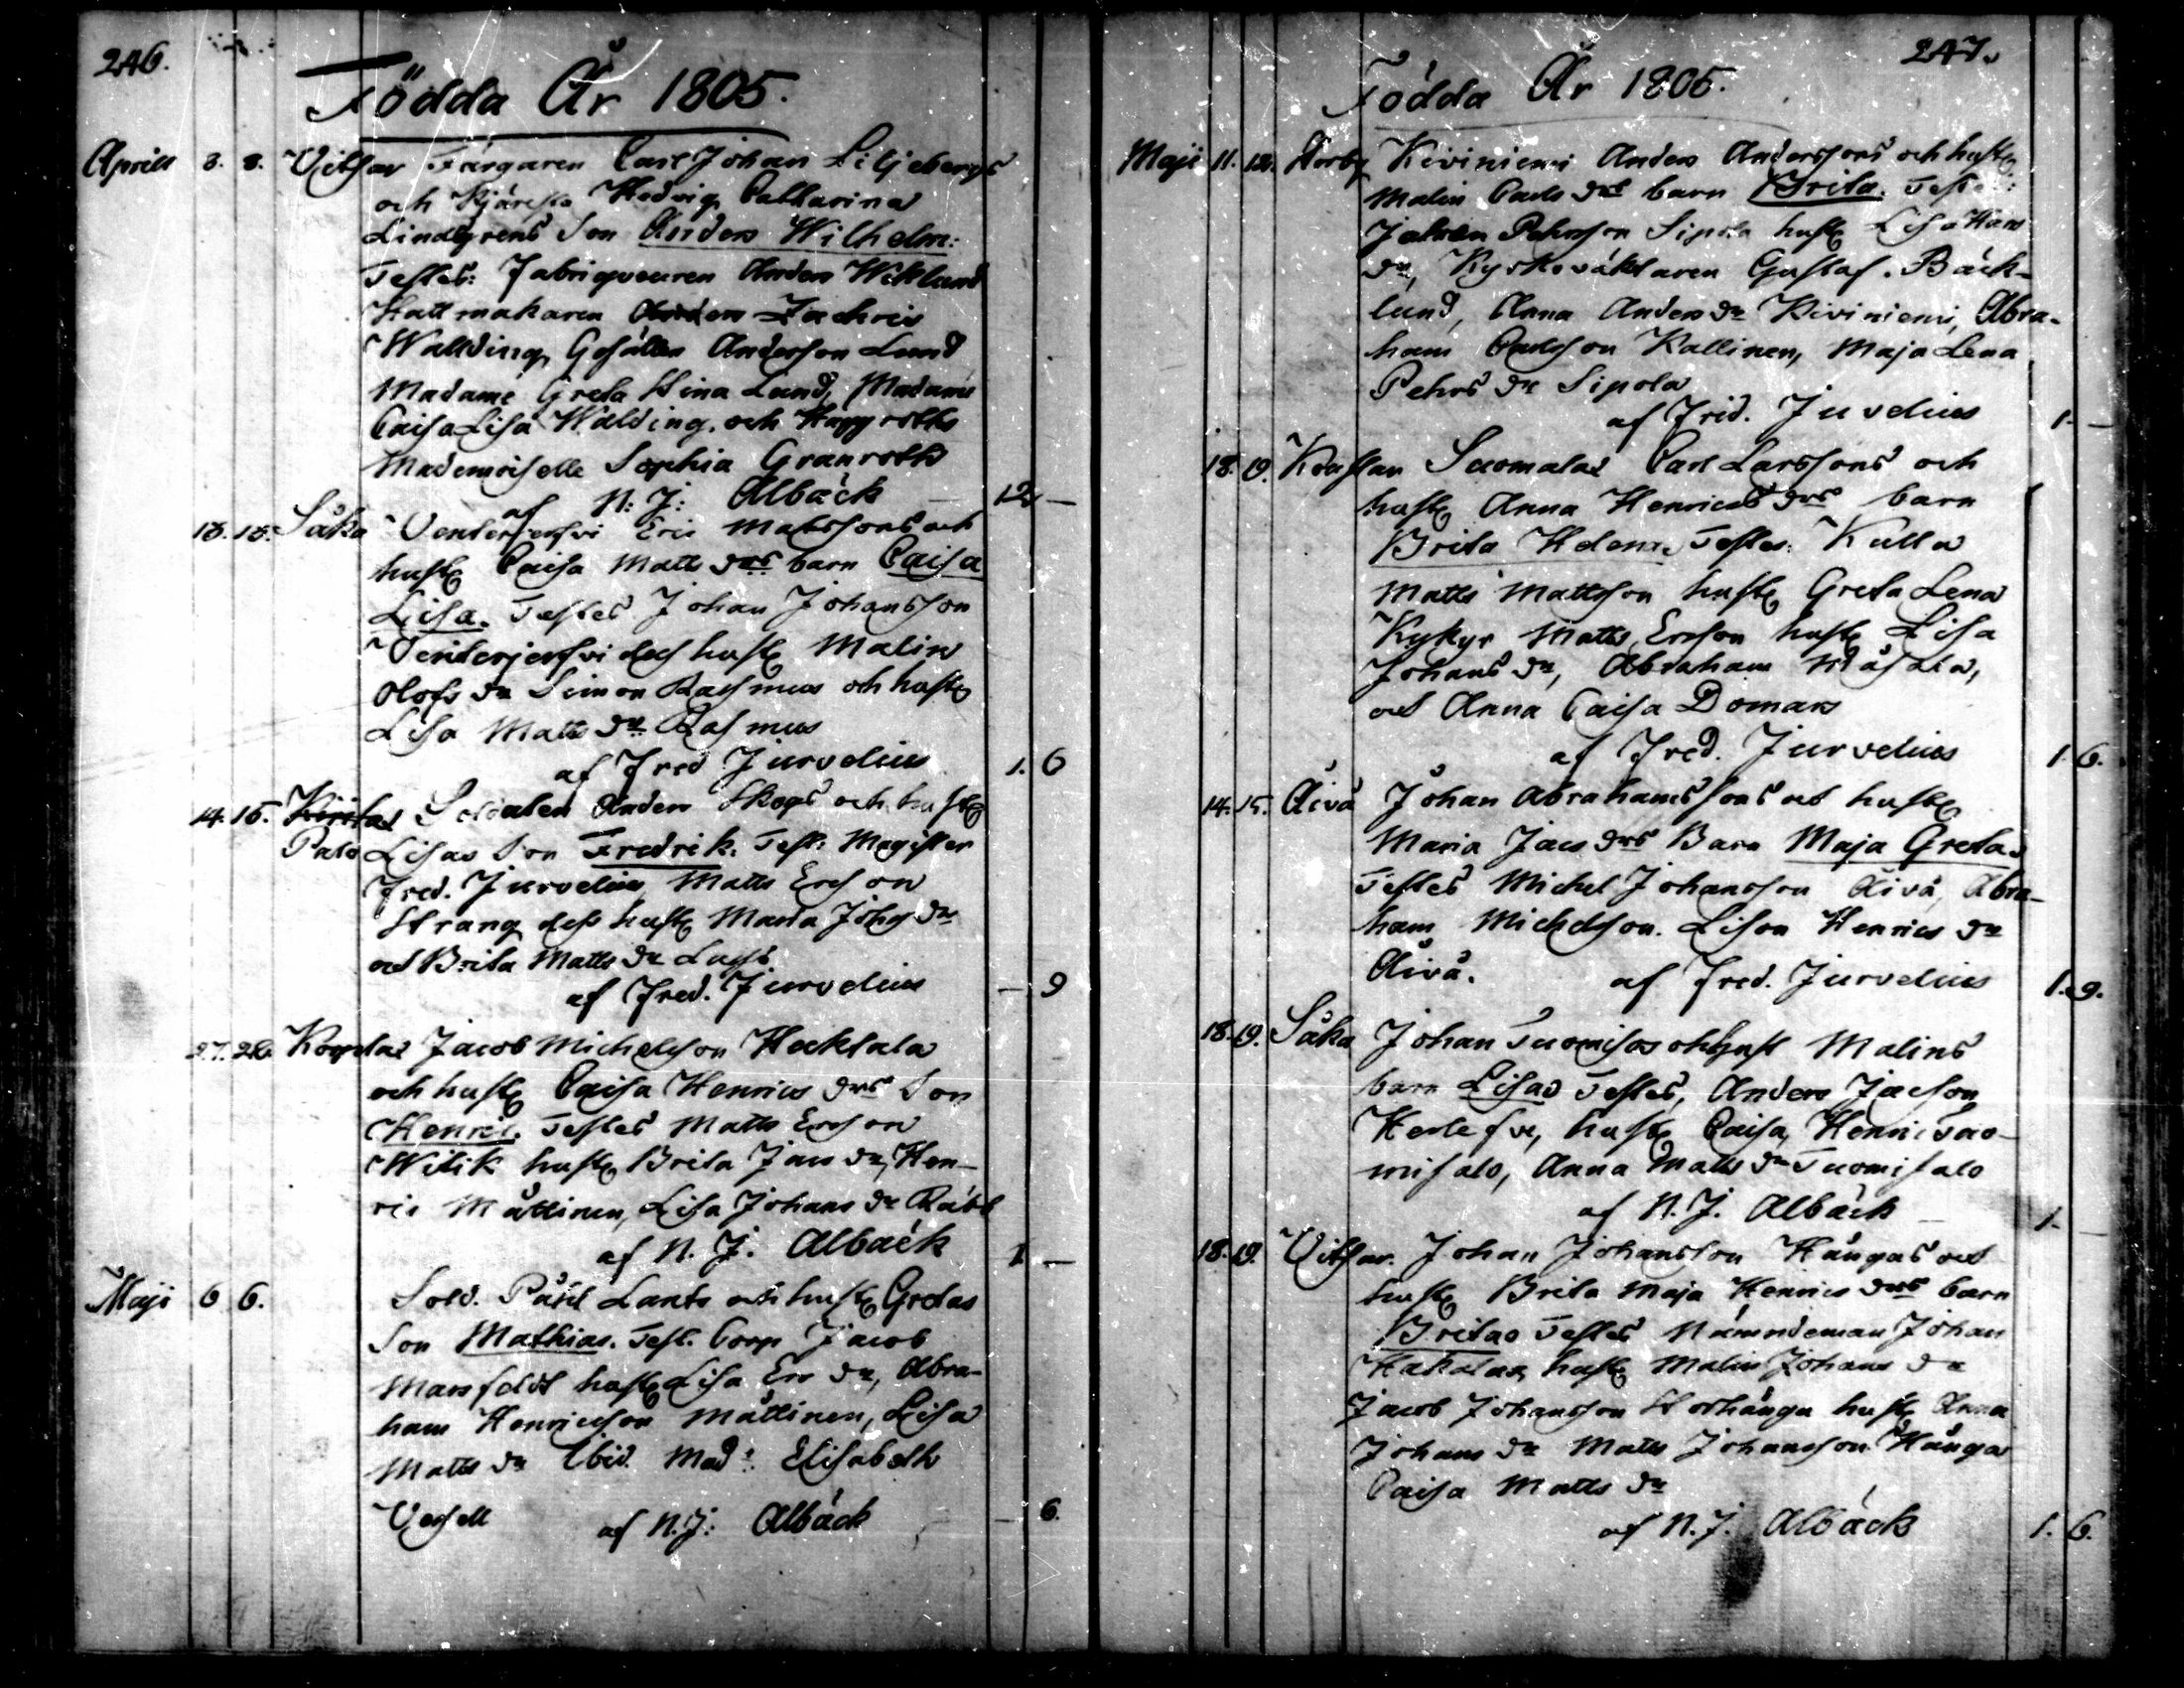 246.
Födda År 1805.
Aprill 8. 8. Vitsar Färgaren Carl Johan Liljebergs
och Kjäresta Hedvig Catharina
Lindgrens Son Anders Wilhelm:
Testes: Fabriqveuren Anders Wiklund
Hattmakaren Zachris
Wallding, Gesällen Anderson Lund
Madame Greta Stina Lund, Madame
Caisa Lisa Wallding. och
Mademoiselle Sophia Granroth
af N: J: Alback 12 —
13. 13. Såka Ventusjerfvi Eric Matssons och
hust Caisa Matts drs barn Caisa
Lisa. Testes Johan Johansson
Ventusjerfvi des hust Malin
Olofs dr Simon Rasmus och hust
Lisa Matts dr Rasmus
af Fred Jurvelius 1. 6
14. 15. Soldaten Anders Skogs och hust
Palo Lisas Son Fredrik. Test: Magister
Fred. Jurvelius Matts Ersson
Strang dess hust Maria Johs dr
och Brita Matts dr
af Fred. Jurvelius — 9
27. 28. Jacob Michelsson Hecktala
och hust Caisa Henrics drs Son
Henric. Testes Matts Ersson
Witik hust Brita Jacs dr, Hen-
ric Mattinen, Lisa Johans dr
af N. J. Alback 1 —
Maji 6 6. Sold. Påhl Lants och hust Gretas
Son Mathias. Test. Corp Jacob
Mansfeldt hust Lisa Ers dr, Abra-
ham Henricsson Mattinen, Lisa
Matts dr Ibid. Mad: Elisabeth
af N. J: Alback — 6.
247.
Födda År 1805.
Maji 11. 12. Kiviniemi Anders Anderssons och hust
Malin Carls drs barn Brita. Teste:
Pehrsson Sipola hust Lisa Hans
dr, Kyrkoväktaren Gustaf. Bäck-
lund, Anna Anders dr Kiviniemi, Abra-
ham Carlsson Kallinen, Maja Lena
Pehrs dr Sipola
af Frid. Juvelius 1. —
18. 19. Suomalas Carl Larssons och
hust Anna Henrics drs barn
Brita Helena. Testes: Kulla
Matts Mattsson hust Greta Lena
Kykyr Matts Ersson hust Lisa
Johans dr, Abraham
och Anna Caisa Domars
af Fred. Jurvelius 1. 6.
14. 15. Åivå Johan Abrahamssons och hust
Maria Jacs drs Barn Maja Greta.
Testes Michel Johansson Åivå, Abra-
ham Michelsson. Lison Henrics dr
Åivå. af Fred. Jurvelius 1. 9.
18. 19. Såka Johan och hust Malins
barn Lisa. Testes, Anders Jacson
hust Caisa, Henric Tuo-
misalo, Anna Matts dr Tuomisalo
af N. J. Alback 1. —
18. 19. Vitsar. Johan Johansson Hångas och
hust Brita Maja Henrics drs barn
Brita. Testes Nämndeman Johan
Hakalax hust Malin Johans dr
Jacob Johansson Storhånga hust Anna
Johans dr Matts Johansson Hånga
Caisa Matts dr
af N. J. Alback 1. 6.